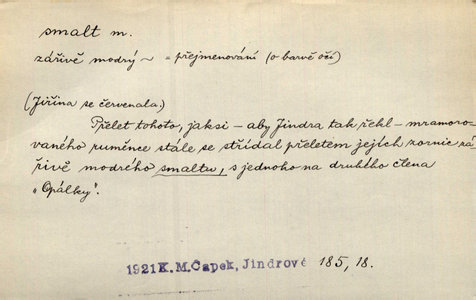 smalt m.
zářivě modrý ~ = přejmenování (o barvě očí)
(Jiřina se červenala.)
Přelet tohoto, jaksi – aby Jindra tak řekl – mramoro-
vaného ruměnce stále se střídal přeletem jejích zornic zá-
řivě modrého smaltu, s jednoho na druhého člena
„Opálky".
1921 K. M. Čapek, Jindrové 185, 18.